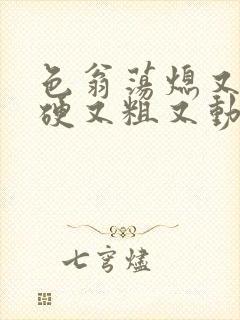 色翁荡熄又
硬又粗又動
七穹燼